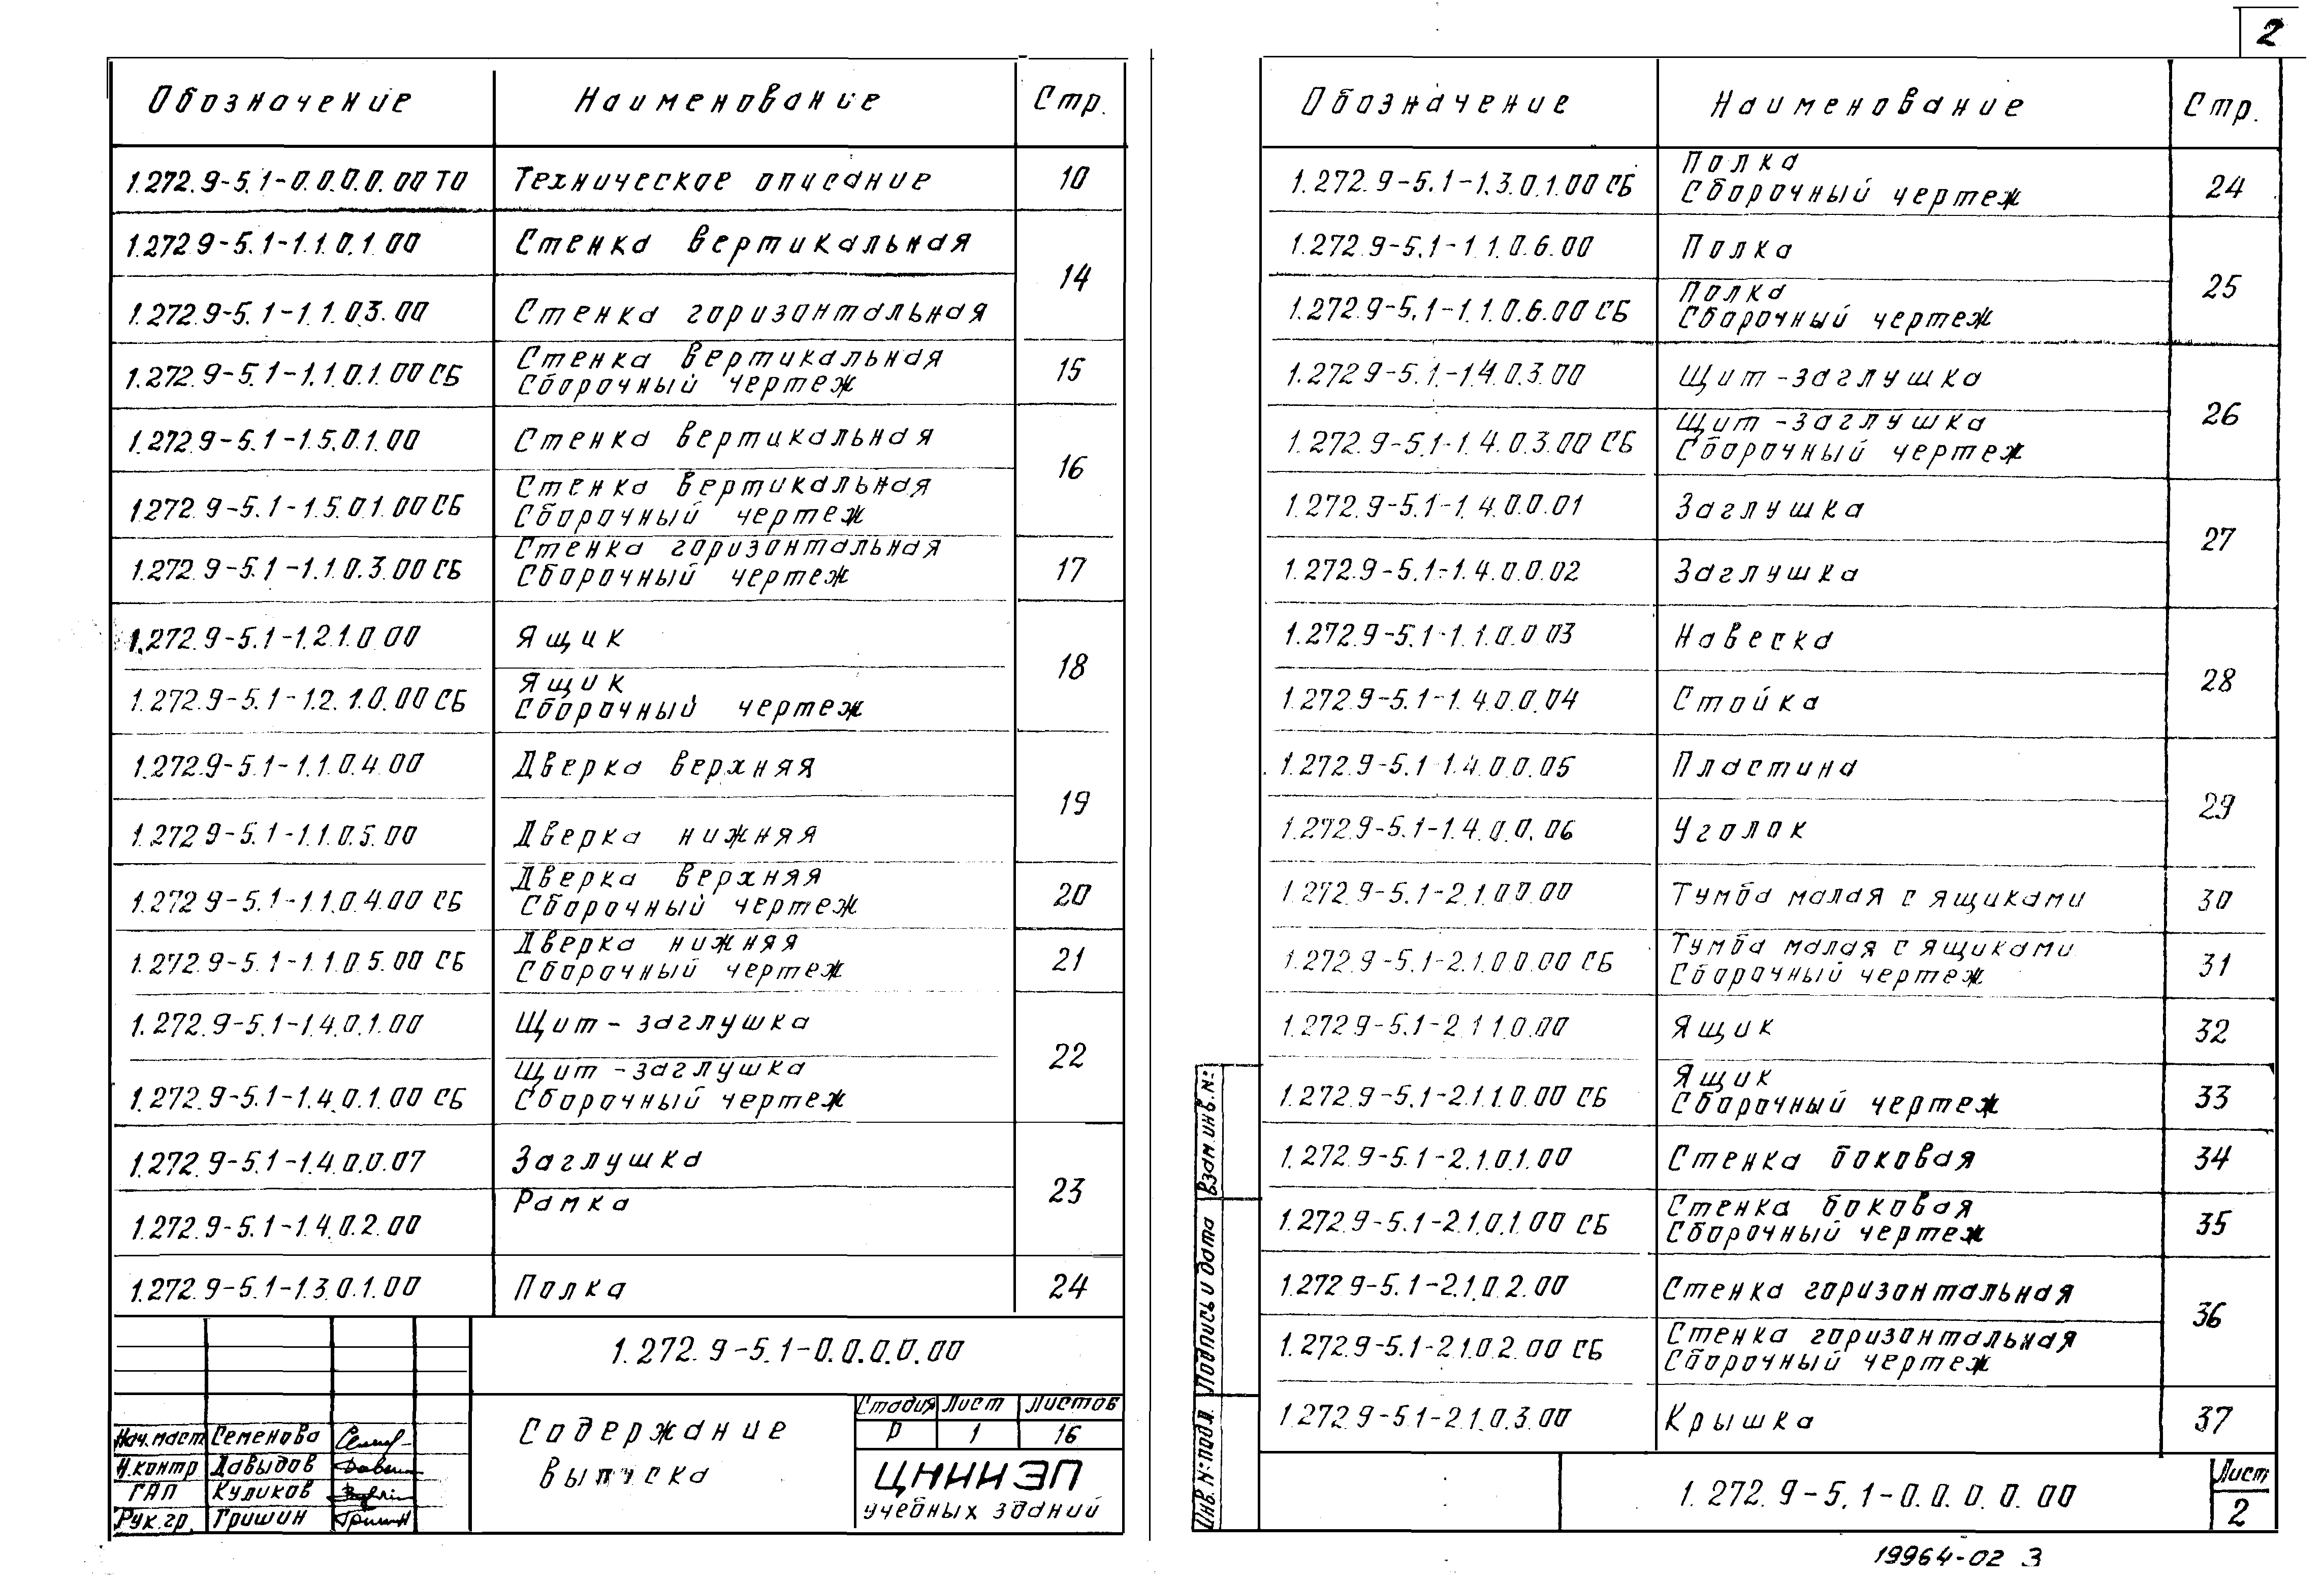 2
Обозначение Наименование Стр.
1.272.9-5.1-0.0.0.0.00 ТО Техническое описание 10
1.272.9-5.1-1.1.0.1.00 Стенка вертикальная 14
1.272.9-5.1-1.1.0.3.00 Стенка горизонтальная
1.272.9-5.1-1.1.0.1.00 СБ Стенка вертикальная 15
Сборочный чертеж
1.272.9-5.1-1.5.0.1.00 Стенка вертикальная 16
1.272.9-5.1-1.5.0.1.00 СБ Стенка вертикальная
Сборочный чертеж
1.272.9-5.1-1.1.0.3.00 СБ Стенка горизонтальная 17
Сборочный чертеж
1.272.9-5.1-1.2.1.0.00 Ящик 18
1.272.9-5.1-1.2.1.0.00 СБ Ящик
Сборочный чертеж
1.272.9-5.1-1.1.0.4.00 Дверка верхняя 19
1.272.9-5.1-1.1.0.5.00 Дверка нижняя
1.272.9-5.1-1.1.0.4.00 СБ Дверка верхняя 20
Сборочный чертеж
1.272.9-5.1-1.1.0.5.00 СБ Дверка нижняя 21
Сборочный чертеж
1.272.9-5.1-1.4.0.1.00 Щит-заглушка 22
1.272.9-5.1-1.4.0.1.00 СБ Щит-заглушка
Сборочный чертеж
1.272.9-5.1-1.4.0.0.07 Заглушка 23
1.272.9-5.1-1.4.0.2.00 Рамка
1.272.9-5.1-1.3.0.1.00 Полка 24
1.272.9-5.1-0.0.0.0.00
Содержание
выпуска
Стадия Лист Листов
Р 1 16
ЦНИИЭП
учебных зданий
Нач.маст Семенова
Н.контр Давыдов
ГАП Куликов
Рук.гр. Гришин
Обозначение Наименование Стр.
1.272.9-5.1-1.3.0.1.00 СБ Полка 24
Сборочный чертеж
1.272.9-5.1-1.1.0.6.00 Полка 25
1.272.9-5.1-1.1.0.6.00 СБ Полка
Сборочный чертеж
1.272.9-5.1-1.4.0.3.00 Щит-заглушка 26
1.272.9-5.1-1.4.0.3.00 СБ Щит-заглушка
Сборочный чертеж
1.272.9-5.1-1.4.0.0.01 Заглушка 27
1.272.9-5.1-1.4.0.0.02 Заглушка
1.272.9-5.1-1.1.0.0.03 Навеска 28
1.272.9-5.1-1.4.0.0.04 Стойка
1.272.9-5.1-1.4.0.0.05 Пластина 29
1.272.9-5.1-1.4.0.0.06 Уголок
1.272.9-5.1-2.1.0.0.00 Тумба малая с ящиками 30
1.272.9-5.1-2.1.0.0.00 СБ Тумба малая с ящиками 31
Сборочный чертеж
1.272.9-5.1-2.1.1.0.00 Ящик 32
1.272.9-5.1-2.1.1.0.00 СБ Ящик 33
Сборочный чертеж
1.272.9-5.1-2.1.0.1.00 Стенка боковая 34
1.272.9-5.1-2.1.0.1.00 СБ Стенка боковая 35
Сборочный чертеж
1.272.9-5.1-2.1.0.2.00 Стенка горизонтальная 36
1.272.9-5.1-2.1.0.2.00 СБ Стенка горизонтальная
Сборочный чертеж
1.272.9-5.1-2.1.0.3.00 Крышка 37
1.272.9-5.1-0.0.0.0.00
Лист
2
Взам.инв.№
Подпись и дата
Инв.№подл.
19964-02 3